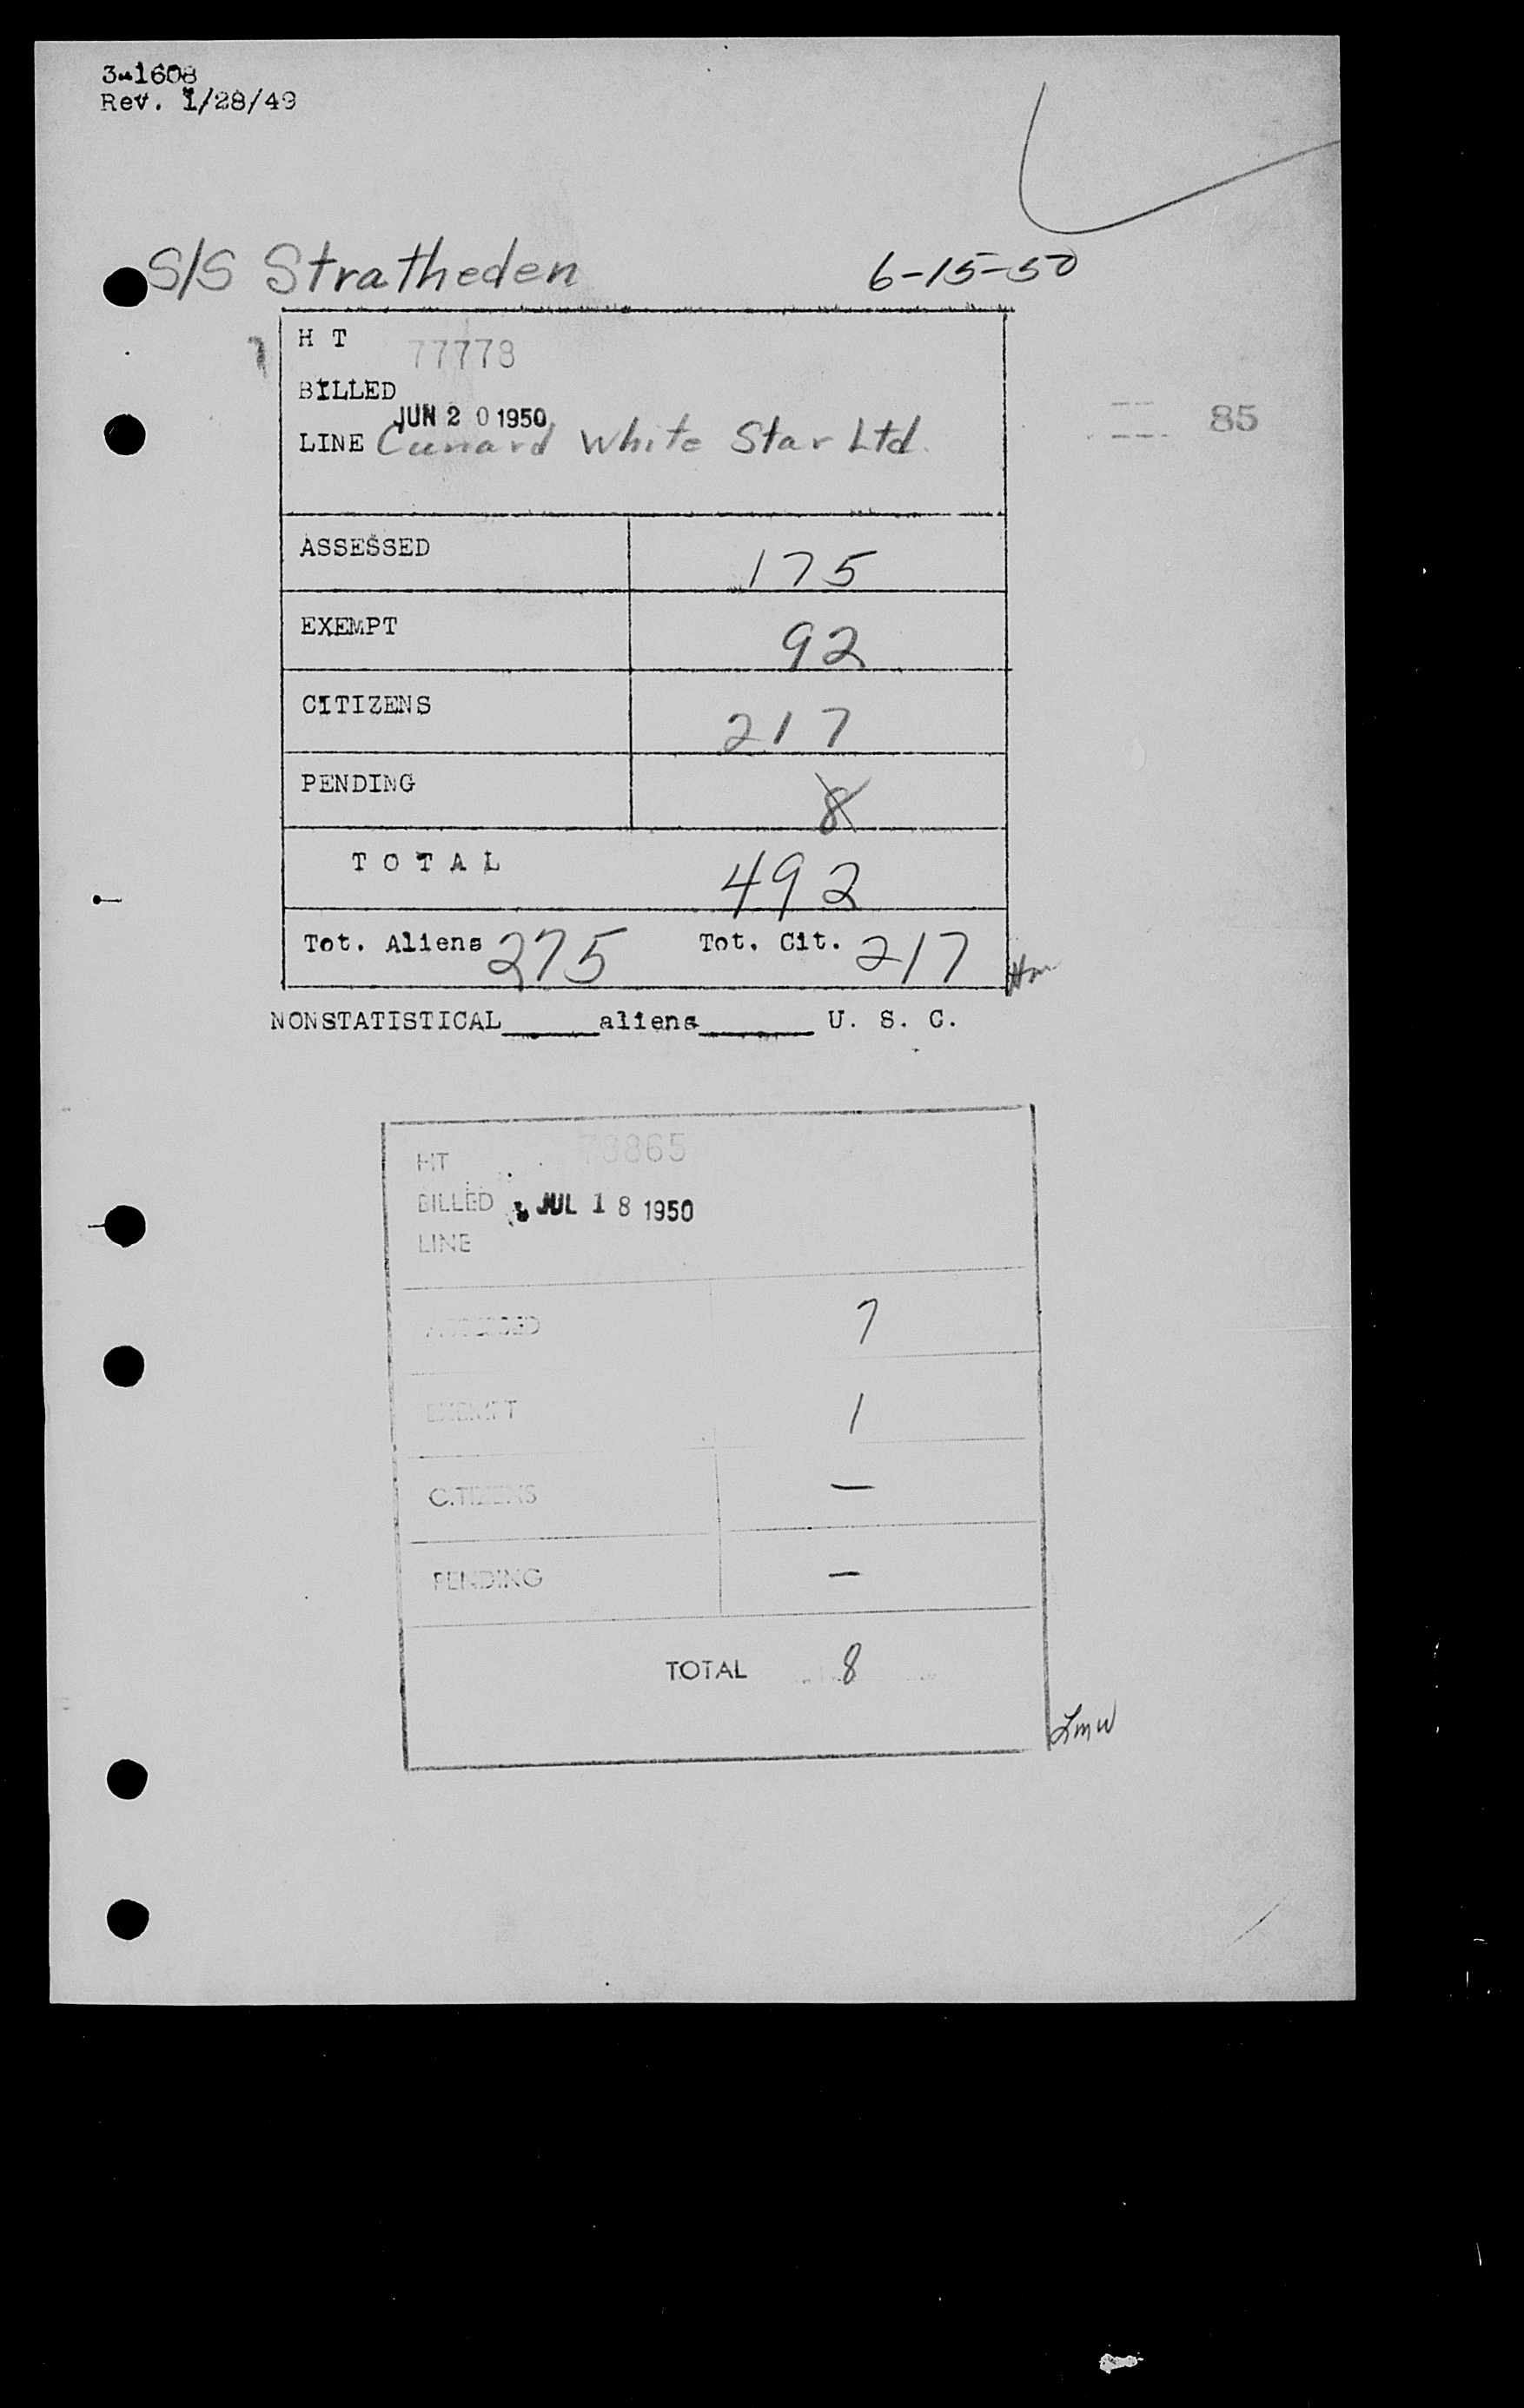 3-1608
Rev. 1/28/49
S/S Stratheden 6-15-50
H T 77778
BILLED
JUN 20 1950
LINE Cunard White Star Ltd.
85
ASSESSED 175
EXEMPT 92
CITIZENS 217
PENDING 8
TOTAL 492
Tot. Aliens 275 Tot. Cit. 217
NONSTATISTICAL______aliens_______ U. S. C.
HT 78865
BILLED JUL 18 1950
LINE
ASSESSED 7
EXEMPT 1
CITIZENS —
PENDING —
TOTAL 8
LMW